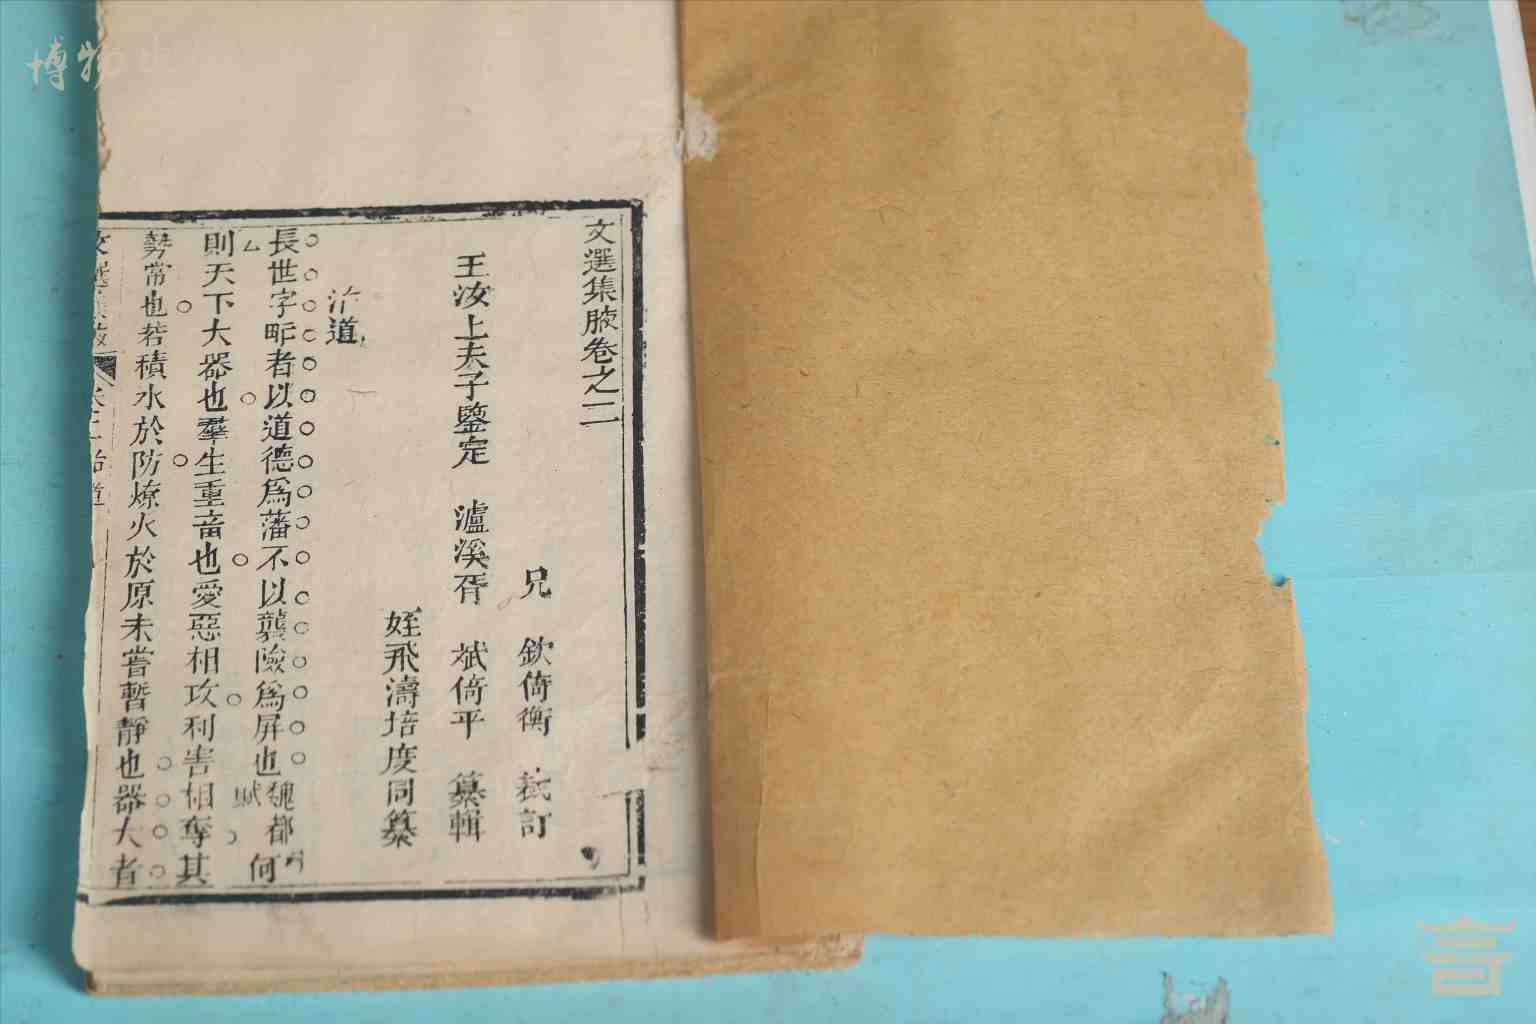 文選集腋卷之二
兄 欽倚衡 訂
王汝上夫子鑒定 瀘溪胥 斌倚平 纂輯
姪飛濤培度同纂
治道
長世字甿者以道德爲藩不以襲險爲屏也魏都賦 何
則天下大器也羣生重畜也愛惡相攻利害相奪其
勢常也若積水於防燎火於原未嘗暫靜也器大者
博物